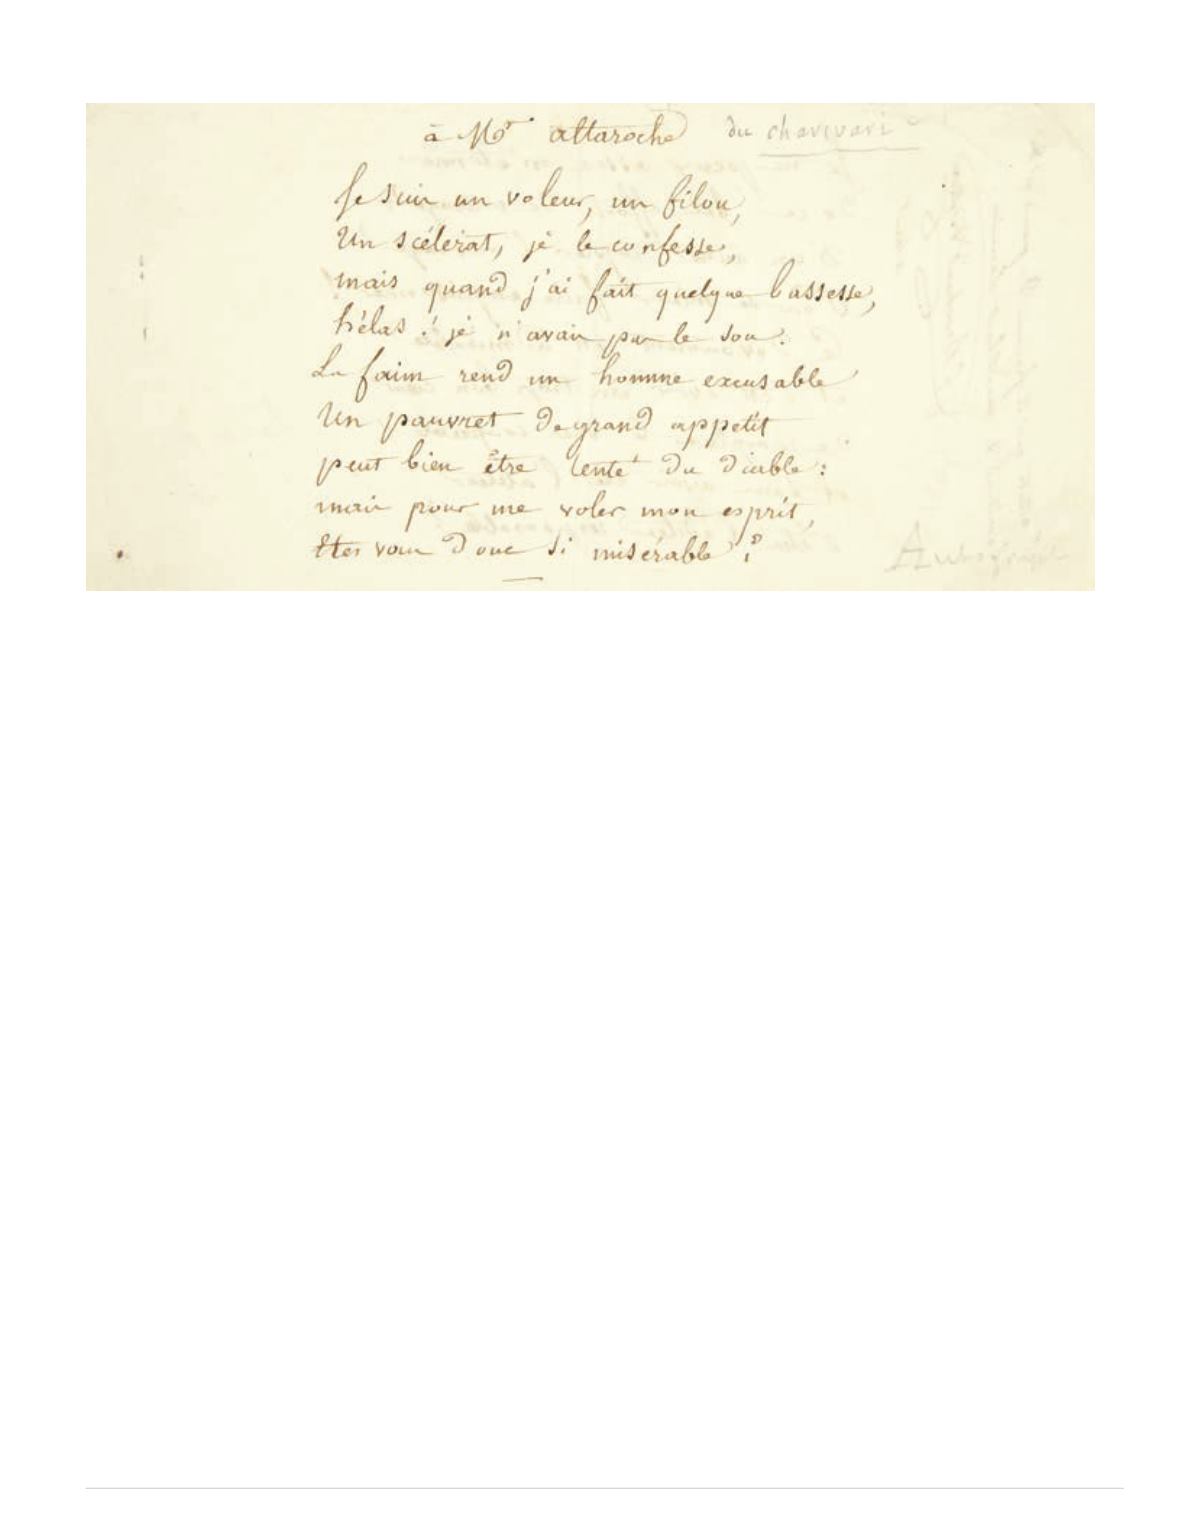 à Mr altaroche du charivari
Je suis un voleur, un filou,
Un scélérat, je le confesse,
mais quand j'ai fait quelque bassesse,
hélas ! je n'avais pas le sou.
La faim rend un homme excusable
Un pauvret de grand appetit
peut bien être tenté du diable :
mais pour me voler mon esprit,
Etes vous donc si misérable ?
Autographe